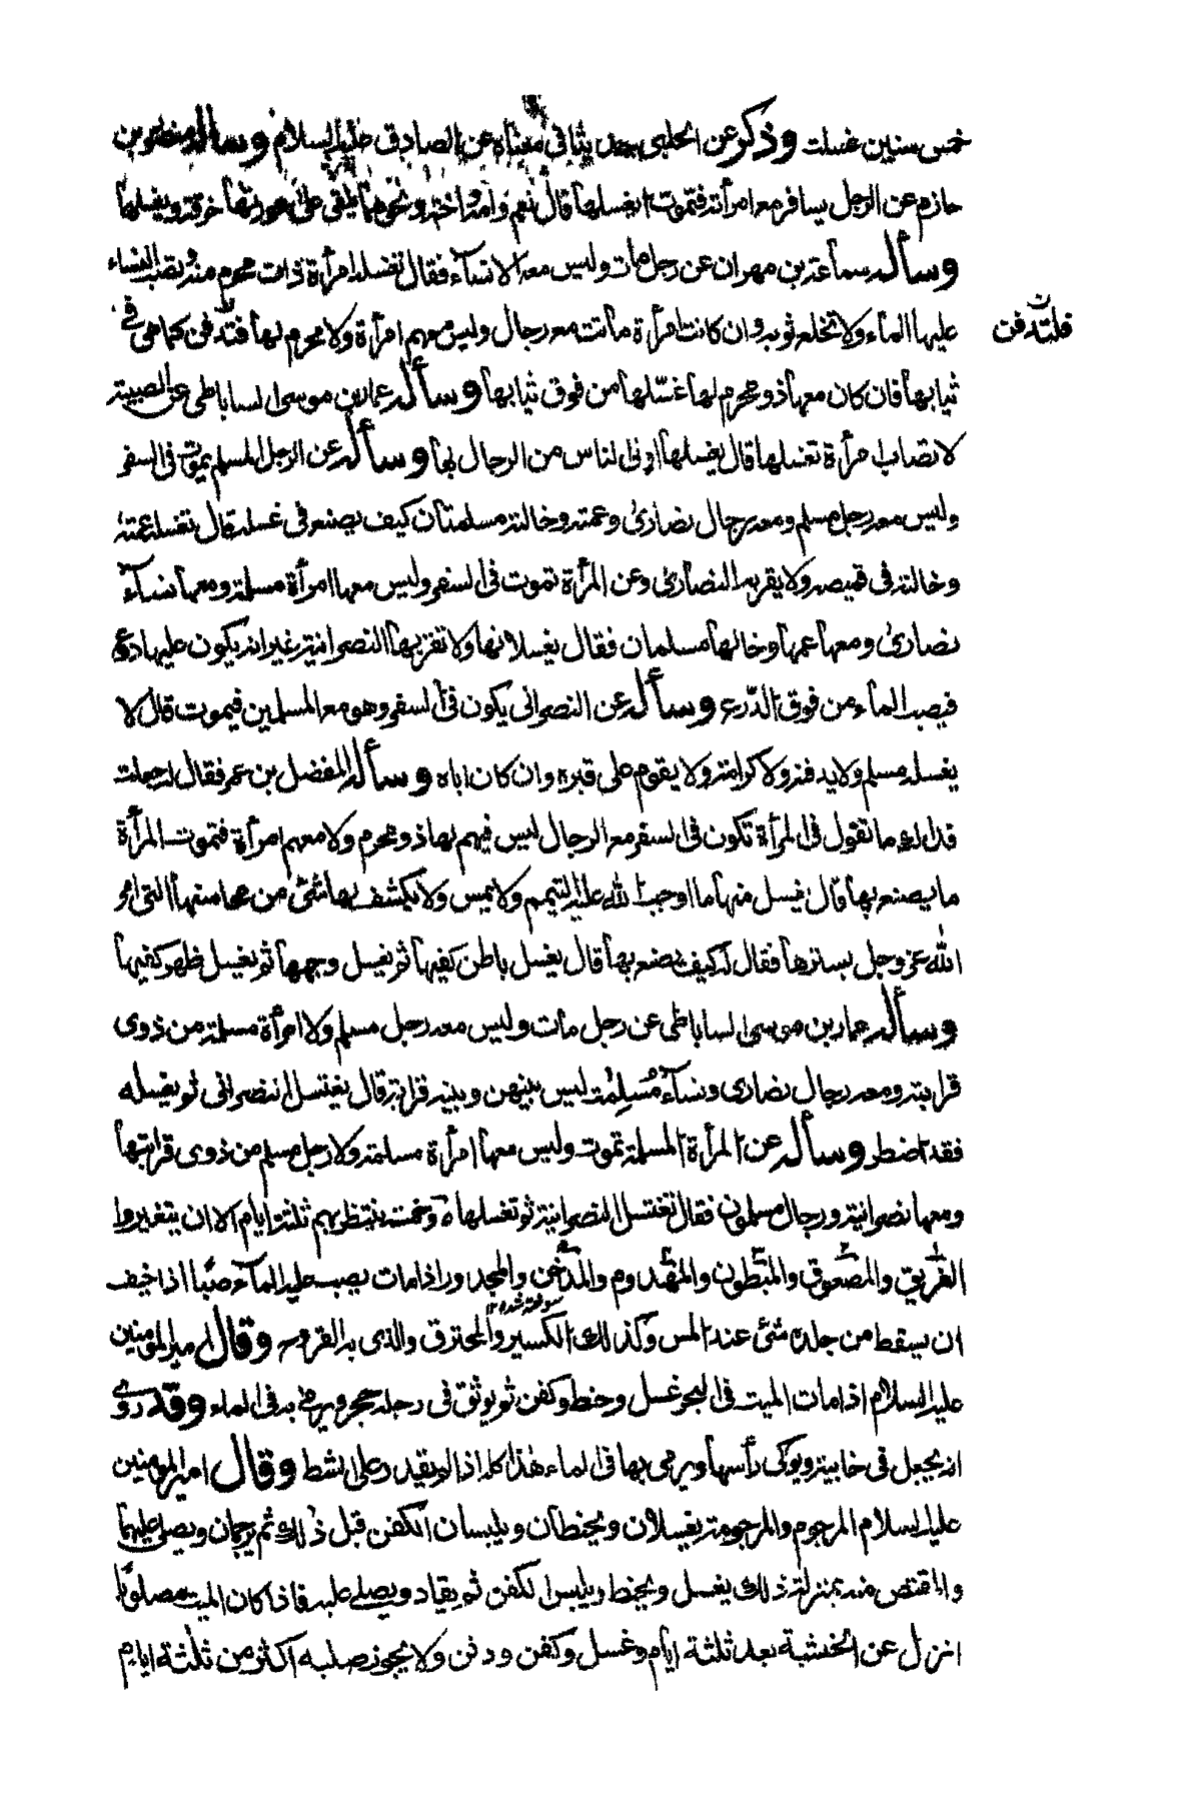 خمس سنين غسلت وذكر عن الحلبى حديثا فى معناه عن الصادق عليه السلام وسأله منصور بن
حازم عن الرجل يسافر مع امرأته فتموت ايغسلها قال نعم وامه واخته ونحوهما يلقى على عورتها خرقة ويغسلها
وسأله سماعة بن مهران عن رجل مات وليس معه الا نسآء فقال تغسله امرأة ذات محرم منه وتصب النساء
عليها المآء ولا تخلع ثوبه وان كانت امرأة ماتت مع رجال وليس معهم امرأة ولا محرم لها فتدفن كما هى فى
فلتدفن
ثيابها فان كان معها ذو محرم لها غسّلها من فوق ثيابها وسأله عمار بن موسى الساباطى عن الصبية
لا تصاب امرأة تغسلها قال يغسلها اولى الناس من الرجال بها وسأله عن الرجل المسلم يموت فى السفر
وليس معه رجل مسلم ومعه رجال نصارى وعمته وخالته مسلمتان كيف يصنع فى غسله قال تغسله عمته
وخالته فى قميصه ولا يقربه النصارى وعن المرأة تموت فى السفر وليس معها امرأة مسلمة ومعها نسآء
نصارى ومعها عمها وخالها مسلمان فقال يغسلانها ولا تقربها النصرانية غير انه يكون عليها درع
فيصب المآء من فوق الدّرع وسأله عن النصرانى يكون فى السفر وهو مع المسلمين فيموت قال لا
يغسله مسلم ولا يدفنه ولا كرامة ولا يقوم على قبره وان كان اباه وسأله المفضل بن عمر فقال له جعلت
فداك ما تقول فى المرأة تكون فى السفر مع الرجال ليس فيهم لها ذو محرم ولا معهم امرأة فتموت المرأة
ما يصنع بها قال يغسل منها ما اوجب الله عليه التيمم ولا يمس ولا يكشف لها شئ من محاسنها التى امر
الله عز وجل بسترها فقال له كيف يصنع بها قال يغسل باطن كفيها ثم يغسل وجهها ثم يغسل ظهر كفيها
وسأله عمار بن موسى الساباطى عن رجل مات وليس معه رجل مسلم ولا امرأة مسلمة من ذوى
قرابته ومعه رجال نصارى ونسآء مُسلِمٰت ليس بينهن وبينه قرابة قال يغتسل النصرانى ثم يغسله
فقد اضطر وسأله عن المرأة المسلمة تموت وليس معها امرأة مسلمة ولا رجل مسلم من ذوى قرابتها
ومعها نصرانية ورجال مسلمون فقال تغتسل النصرانية ثم تغسلها وخمسة ينتظر بهم ثلثة ايام الا ان يتغيروا
الغريق والمصعوق والمبطون والمهدوم والمدخن والمجدور اذا مات يصب عليه المآء صبّا اذا خيف
ان يسقط من جلده شئ عند المس وكذلك الكسير والمحترق والذى به القروح وقال امير المؤمنين
سوخته شده
عليه السلام اذا مات الميت فى البحر غسل وحنط وكفن ثم يوثق فى رجله حجر ويرمى به فى الماء وقد روى
انه يجعل فى خابية ويوكى رأسها ويرمى بها فى الماء هٰذا كله اذا لم يقدر على الشط وقال امير المؤمنين
عليه السلام المرجوم والمرجومة يغسلان ويحنطان ويلبسان الكفن قبل ذلك ثم يرجمان ويصلى عليهما
والمقتص منه بمنزلة ذلك يغسل ويحنط ويلبس الكفن ثم يقاد ويصلى عليه فاذا كان الميت مصلوبًا
انزل عن الخشبة بعد ثلثة ايام وغسل وكفن ودفن ولا يجوز صلبه اكثر من ثلثة ايام